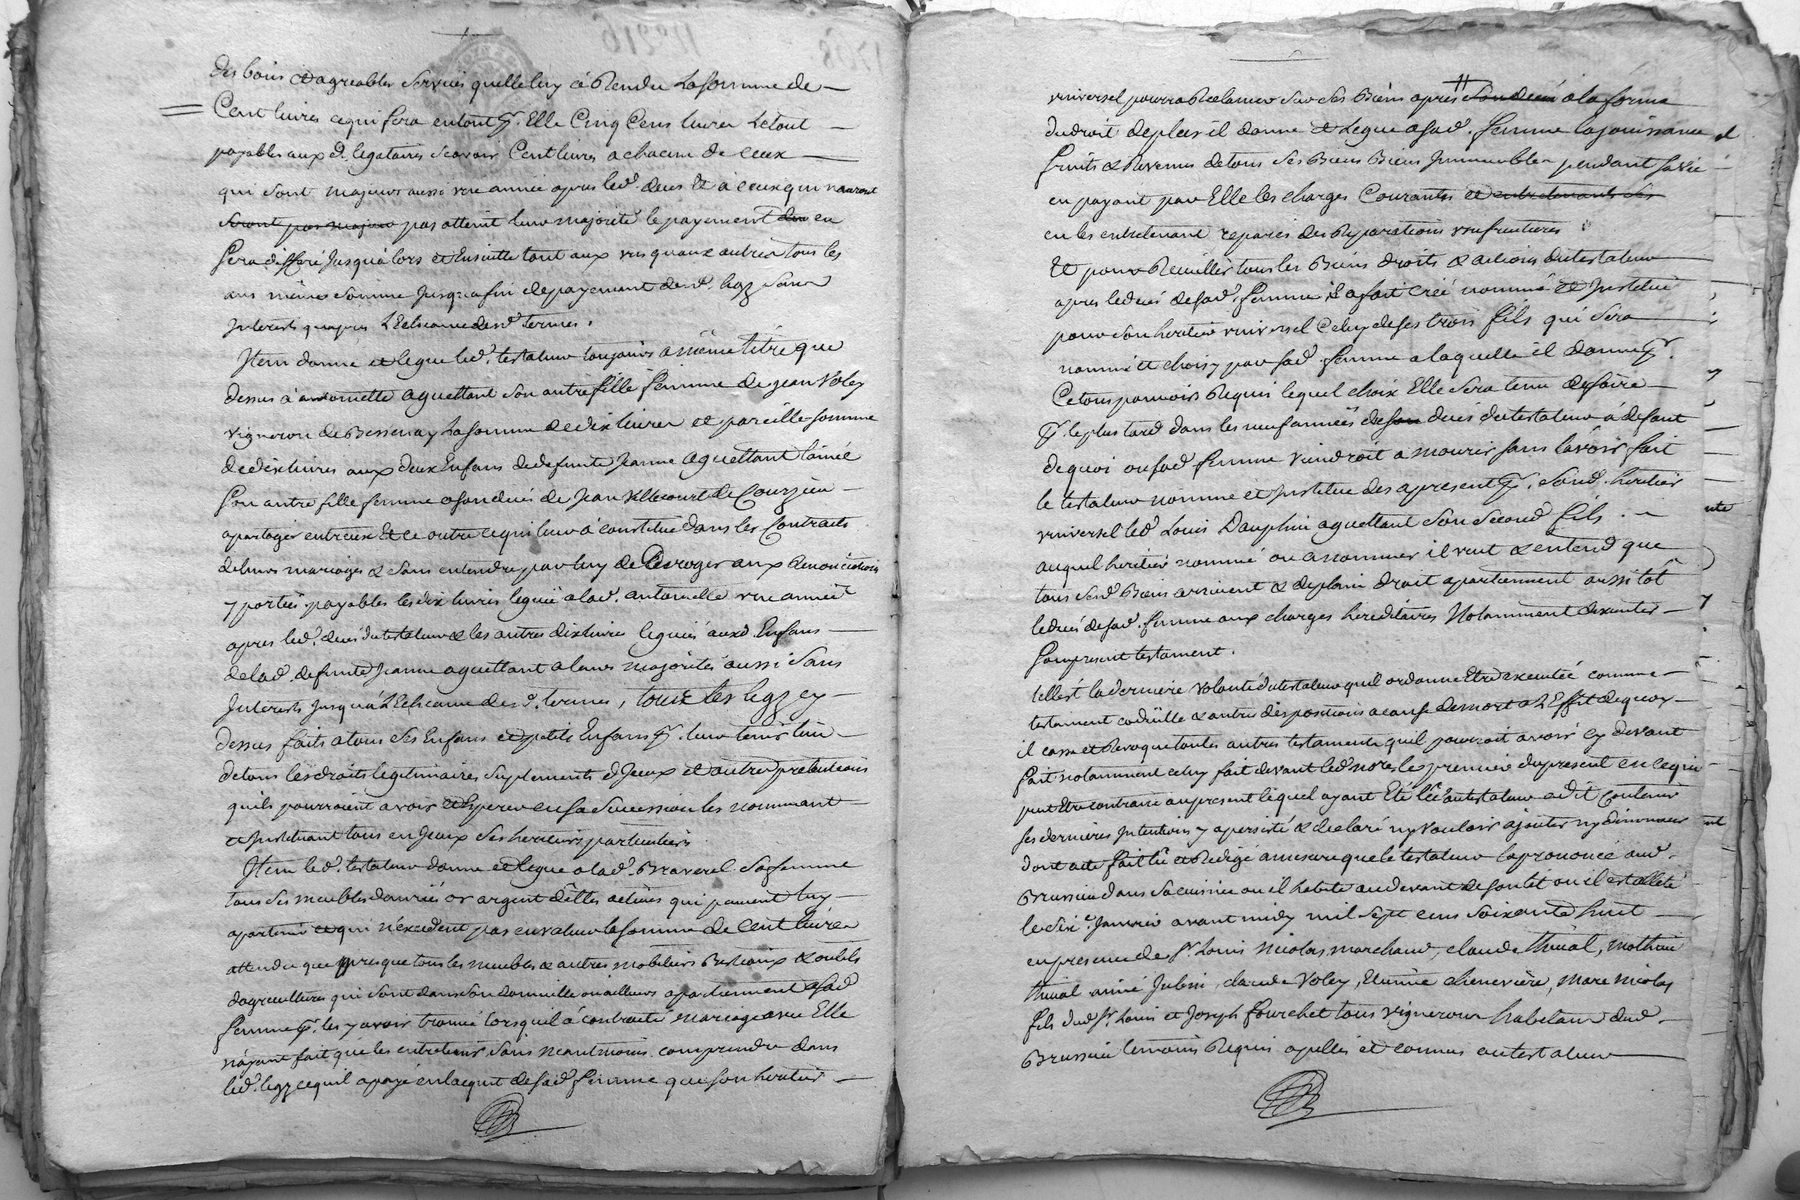 des bons et agreables services quelle luy à Rendu La somme de
Cent livres ce qui fera en tout pr. Elle Cinq Cens livres Le tout
payables aux d. legataires scavoir Cent livres a chacun de ceux
qui sont majeurs aussi une année apres led. deces Et à ceux qui n'auront
seront pas majeurs pas atteint leur majorité le payement des en
sera differé Jusqu'alors et Ensuitte tout aux uns quaux autres tous les
ans même somme Jusqu'a fin de payement desd. legs sans
Interests qu'apres L'Echeance desd. termes.
Item donne et legue led. testateur toujours a même titre que
dessus à antoinette aguettant son autre fille femme de jean Voley
vigneron de Bessenay La somme de dix livres et pareille somme
de dix livres aux deux Enfans de defunte Jeanne aguettant L'ainée
son autre fille femme a son deces de Jean Villecourt de Courzieu
a partager entreux Et ce outre ce qui leur à constitué dans les Contrats
de leurs mariages & sans entendre par luy de Deroger aux Renonciations
y portées payables les dix livres leguées a lad. antoinette une année
apres led. deces du testateur & les autres dix livres leguées auxd. Enfans
de lad. defunte Jeanne aguettant a leurs majorités aussi sans
Interests Jusqu'à L'Echeance desd. termes, tous les legs cy
dessus faits a tous ses Enfans et petits Enfans pr. leur tenir lieu
de tous les droits legitimaires suplements d'Iceux et autres pretentions
qu'ils pourroient avoir et Esperer en sa succession les nommant
et Instituant tous en Iceux ses heritiers particuliers
Item led. testateur donne et legue a lad. Braverel sa femme
tous ses meubles danrées or argent dettes actives qui peuvent luy
apartenir et qui n'excedent pas en valeur la somme de Cent livres
attendu que presque tous les meubles & autres mobiliers Bestiaux & outils
d'agricultures qui sont dans son domicille ou ailleurs apartiennent a sad.
femme pr. les y avoir trouvé lorsquil à contracté mariage avec Elle
n'ayant fait que les entretenir sans neantmoins comprendre dans
led. legs ce quil a payé en l'acquit de sad. femme que son heritier
universel pourra Reclamer sur ses Biens apres son deces à la forme
du droit de plus il donne et Legue a sad. femme la jouissance et
fruits & Revenus de tous ses Biens Biens Immeubles pendant sa vie
en payant par Elle les charges Courantes et entretenants les
en les entretenant reparés des Reparations usufruitieres
Et pour Recuillir tous les Biens droits & actions du testateur
apres le deces de sad. femme il a fait creé nommé et Institué
pour son heritier universel Celuy de ses trois fils qui sera
nommé et choisy par sad. femme a laquelle il donne pr.
Ce tous pouvoirs Requis lequel choix Elle sera tenue de faire
pr. le plus tard dans les neuf années de son deces du testateur à defaut
de quoi ou sad. femme viendroit a mourir sans l'avoir fait
le testateur nomme et Institue des apresent pr. sond. heritier
universel led. Louis Dauphin aguettant son second fils
auquel heritier nommé ou a nommer il veut & entend que
tous sesd. Biens arrivent & de plain droit apartiennent aussitôt
le deces de sad. femme aux charges hereditaires Notamment d'executer
son present testament.
Telle est la derniere volonté du testateur quil ordonne Etre executée comme
testament codicille & autres dispositions a cause de mort a L'Effet de quoy
il casse et Revoque toutes autres testaments quil pourroit avoir cy devant
fait notamment celuy fait devant led. nore. le premier du present en ce qui
peut Etre contraire au present lequel ayant Eté lû au testateur a dit Contenir
ses dernieres Intentions y a persisté & declaré n'y vouloir ajouter ny diminuer
dont acte fait lû et Redigé a mesure que le testateur l'a prononcé aud.
Brussieu dans sa cuisine ou il habite au devant de son lit ou il est alleté
le six e. Janvier avant midy mil sept cens soixante huit
en presence de Sr. Louis Nicolas marchand, claude thival, mathieu
thival aimé Jubin, claude Voley, Etienne chenevière, marc nicolas
fils dud. Sr. Louis et Joseph fourchet tous vignerons habitans dud.
Brussieu temoins Requis apellés et connus au testateur